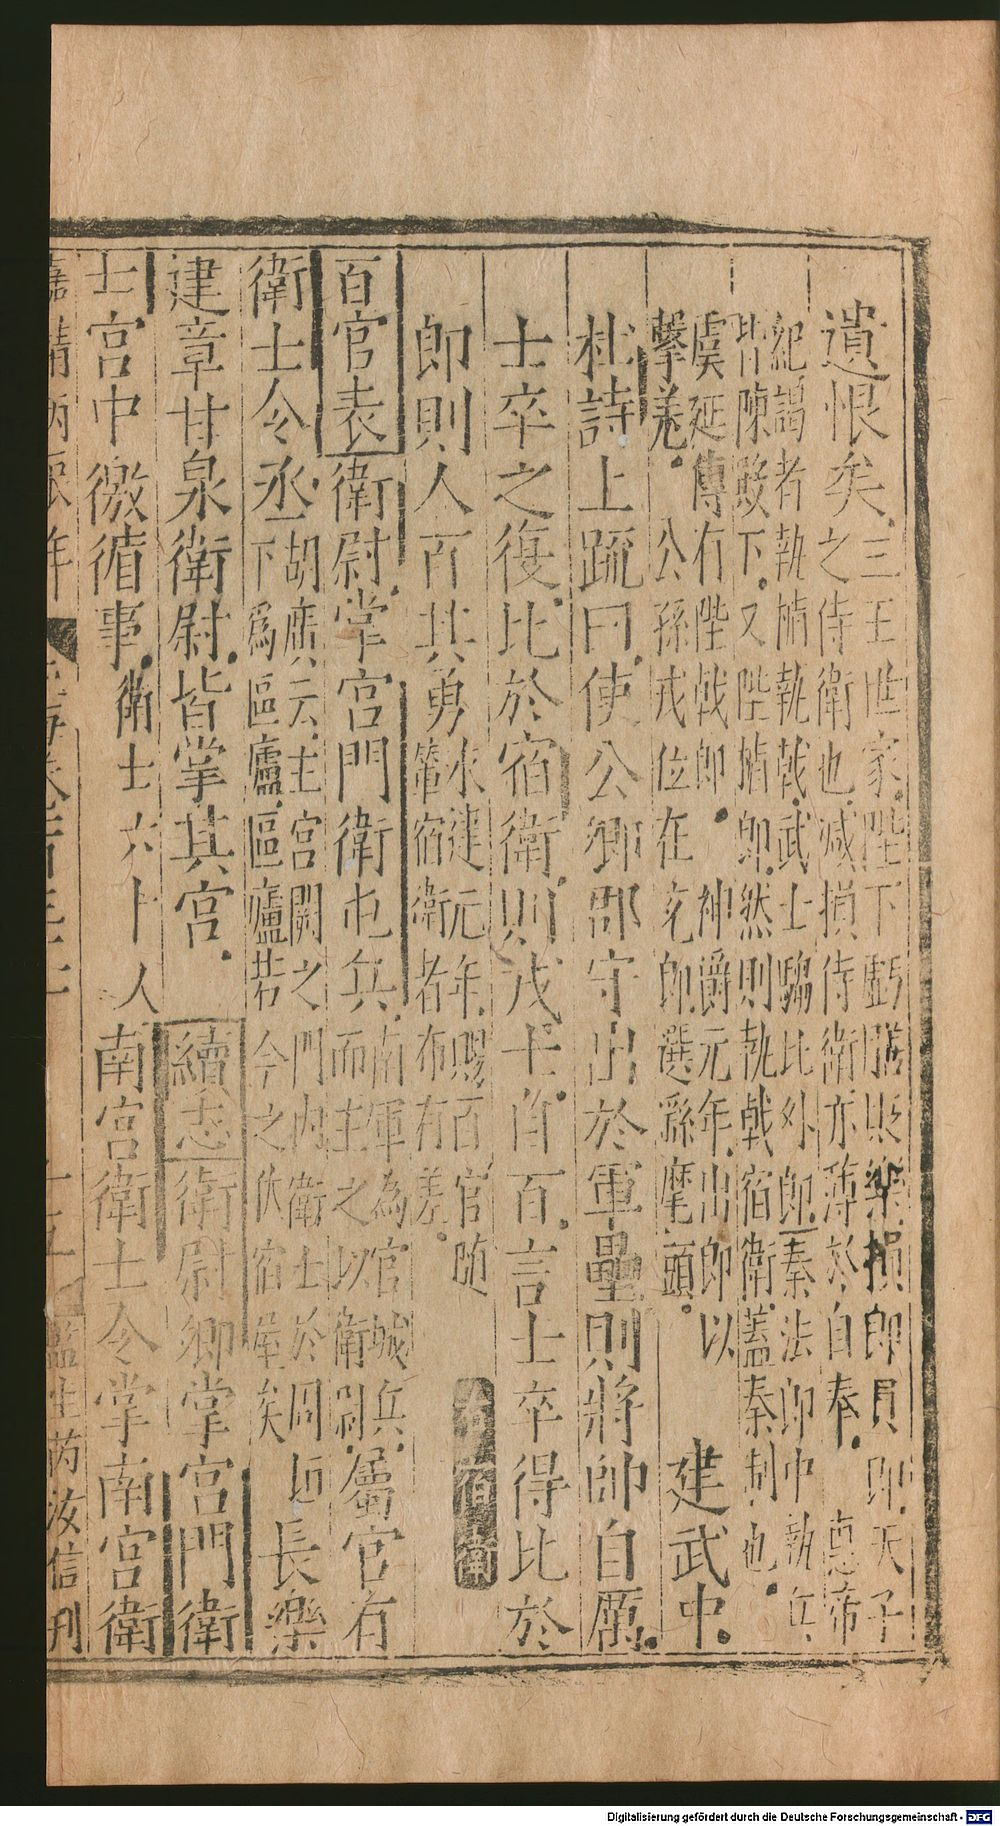 遺恨矣三王世家陛下虧膳貶樂損郎員郎天子
之侍衛也減損侍衛亦薄於自奉惠帝
紀謁者執楯執戟武士騶比外郎秦法郎中執兵
皆陳殿下又陛楯郎然則執戟宿衛蓋秦制也
虞延傳有陛戟郎神爵元年出郎以
擊羌公孫戎位在充郎選繇旄頭建武中
杜詩上疏曰使公卿郡守出於軍壘則將帥自厲
士卒之復比於宿衛則戎士自百言士卒得比於
郎則人百其勇永建元年賜百官隨
輦宿衛者布有差宿衛
百官表衛尉掌宮門衛屯兵南軍為宮城兵
而主之以衛尉屬官有
衛士令丞胡廣云主宮闕之門內衛士於周垣
下為區廬區廬若今之仗宿屋矣長樂
建章甘泉衛尉皆掌其宮續志衛尉卿掌宮門衛
士宮中徼循事衛士六十人南宮衛士令掌南宮衛
嘉靖丙辰年 監生芮汝信刊
Digitalisierung gefördert durch die Deutsche Forschungsgemeinschaft - DFG